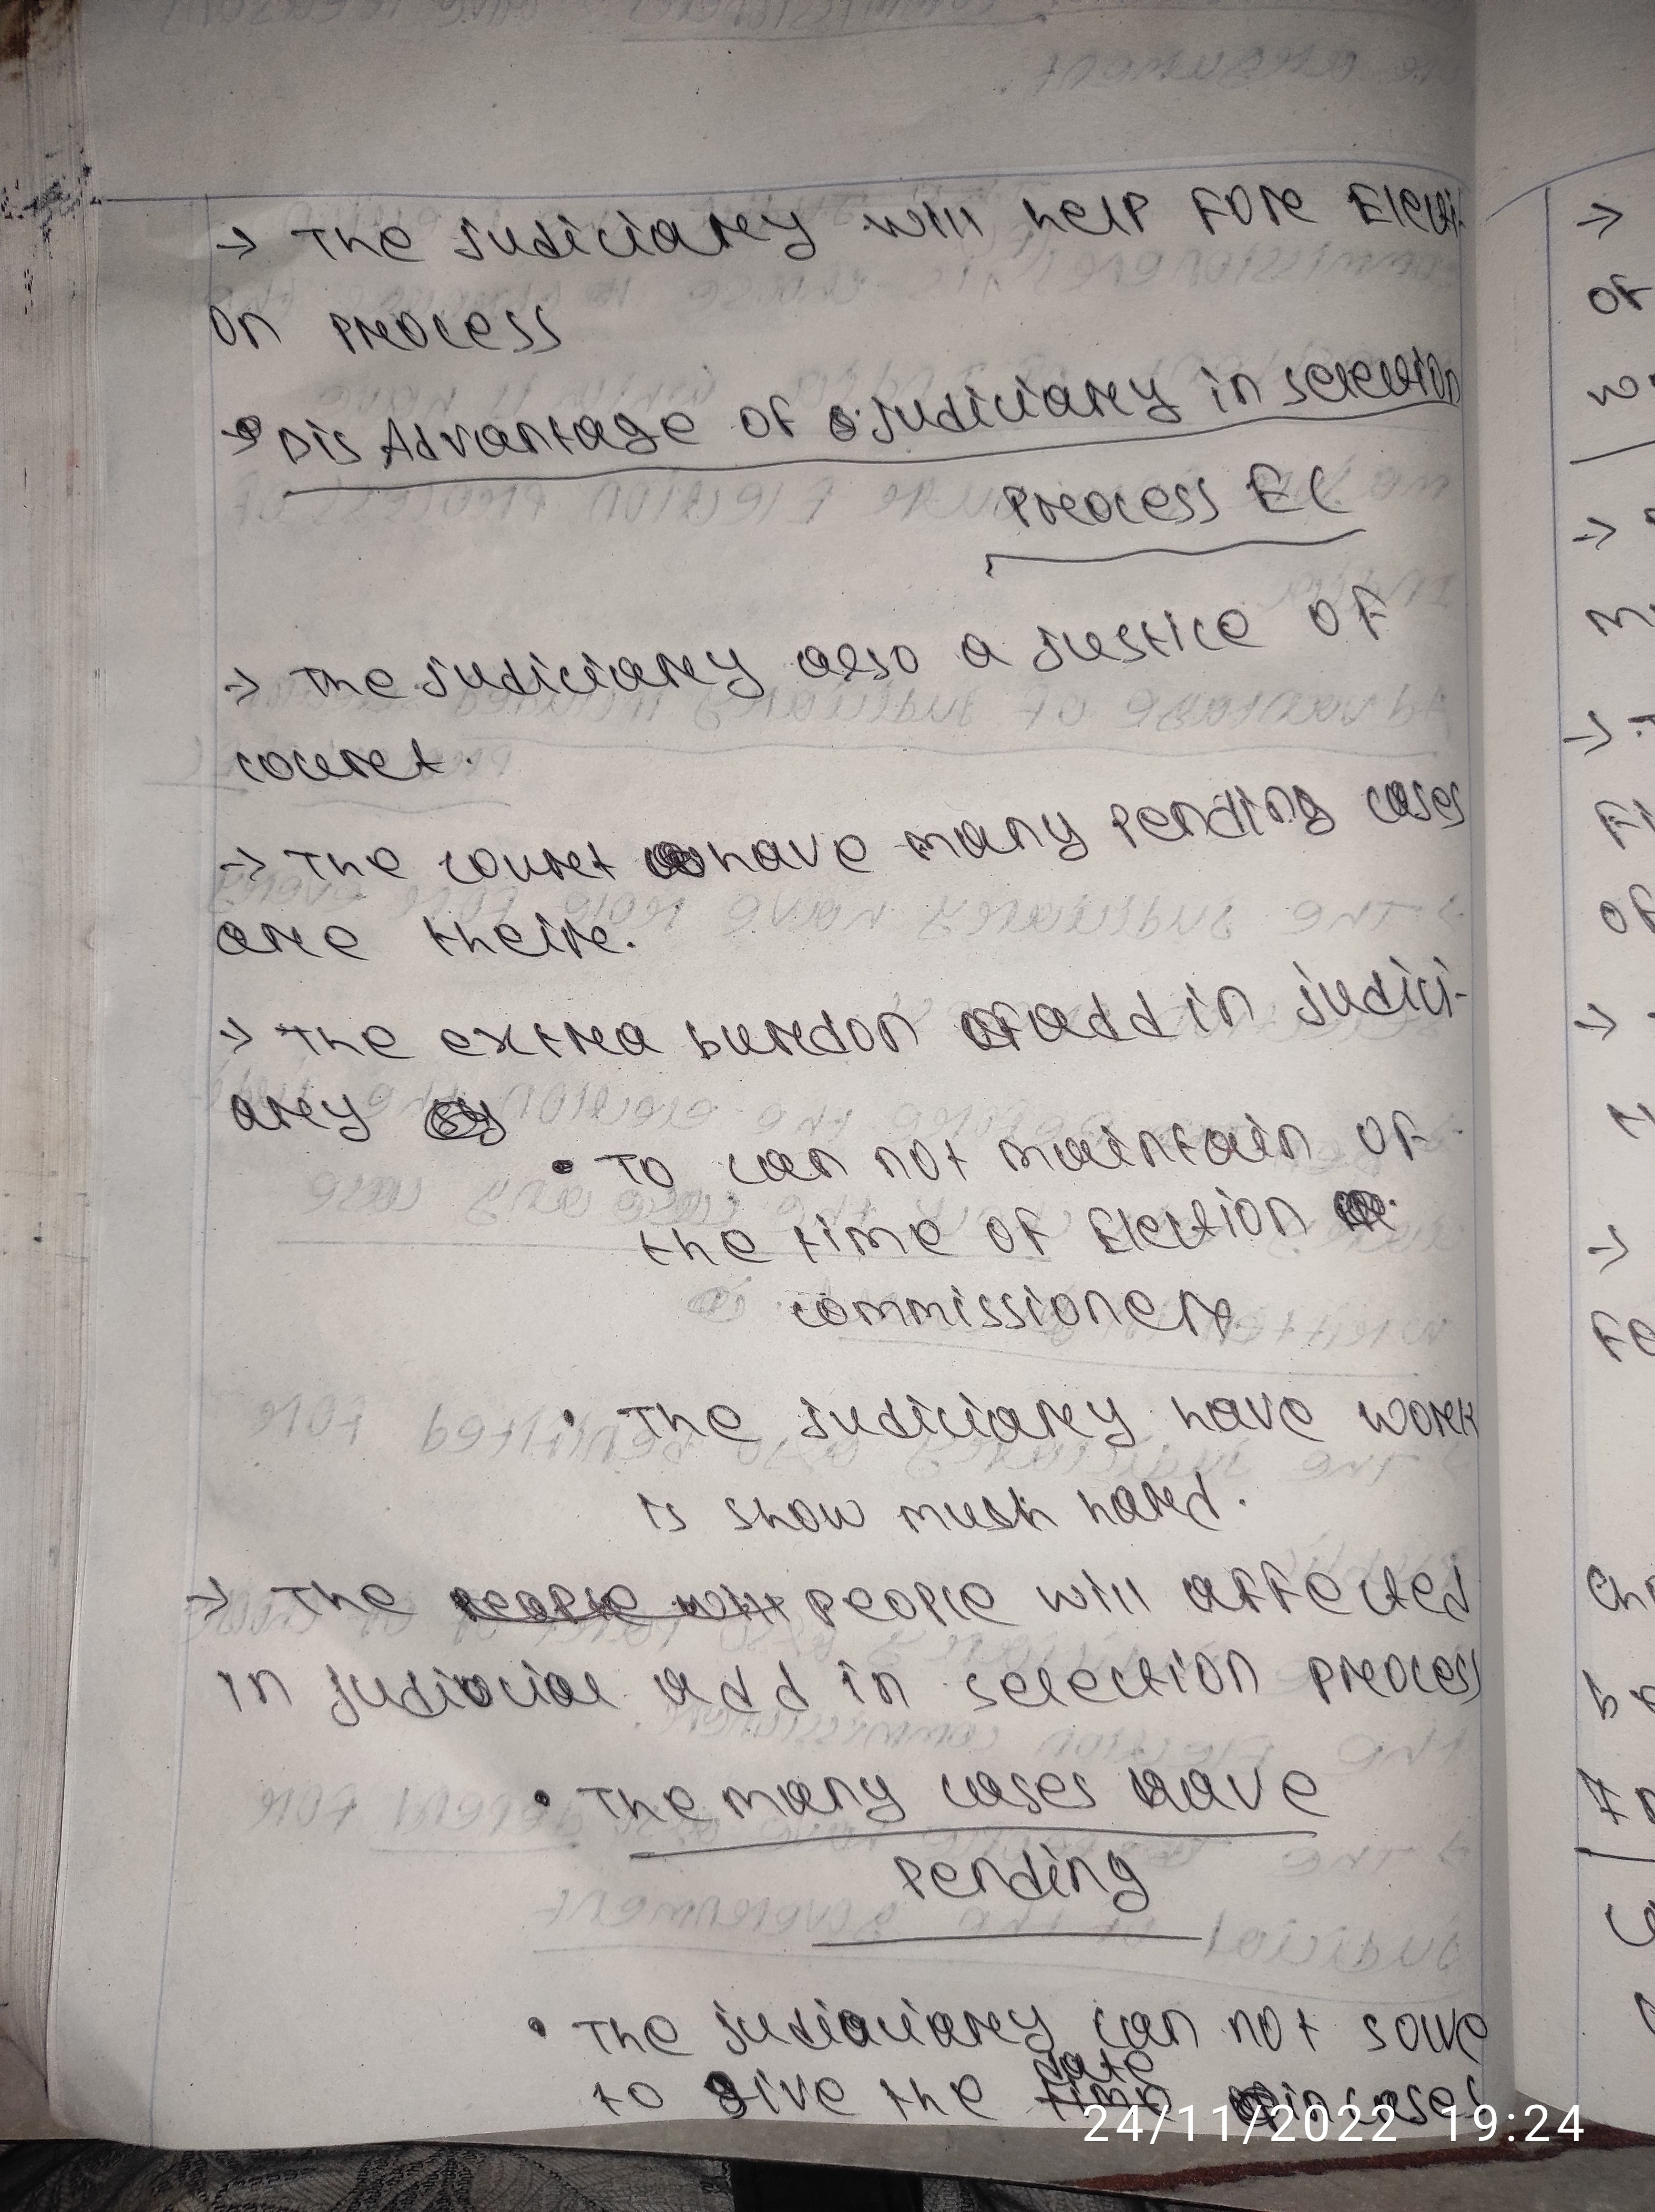 → The judiciary will help for Electi
on process
→ Dis Advantage of judiciary in selection
process EC
→ The judiciary also a justice of
court.
→ The court have many pending cases
are their.
→ The extra burdon of add in judici-
ary
• To can not maintain of
the time of Election
commissioner
• The judiciary have work
is show mush hard.
→ The people will affected
in judicial add in selection process
• The many cases have
pending
• The judiciary can not solve
to give the date in cases
24/11/2022 19:24
→
of
→
→
of
→
→